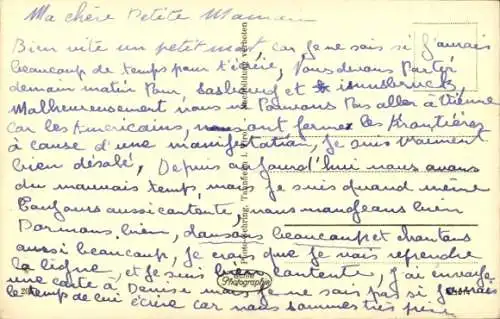 Ma chère Petite Maman
Bien vite un petit mot car je ne sais si j'aurais
beaucoup de temps pour t'écrire, Nous devons Partir
demain matin Pour et innsbruck,
Malheureusement nous ne Pouvons Pas aller à Vienne
car les Américains, nous ont fermer les Frontières
à cause d'une manifestation, je suis vraiment
bien désolé, Depuis aujourd'hui nous avons
du mauvais temps, mais je suis quand même
toujours aussi contente, nous mangeons bien
Dormons bien, dansons beaucoup et chantons
aussi beaucoup, je crois que je vais reprendre
la ligne, et je suis bien contente, j'ai envoyé
une carte à Denise mais je ne sais pas si j'aurais
le temps de lui écrire car nous sommes très
Photographie